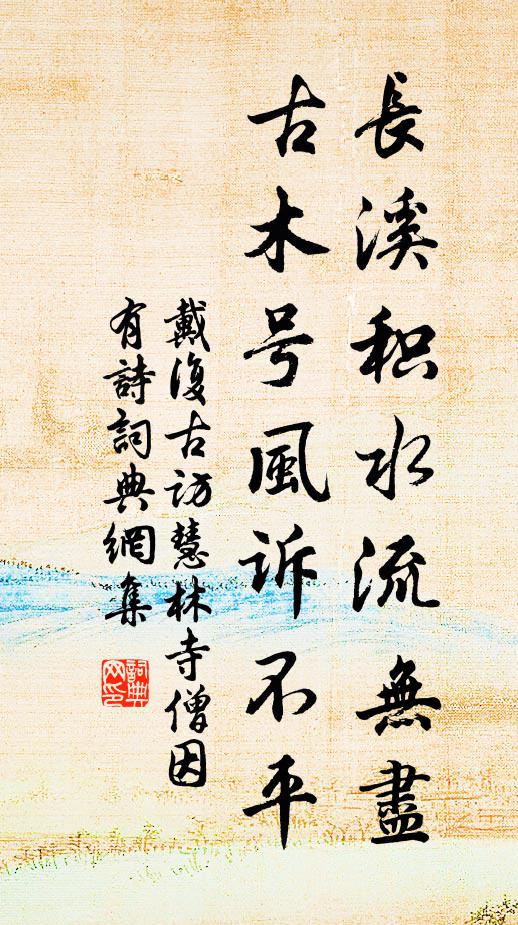 長溪积水流無盡
古木号風诉不平
戴復古访慧林寺僧因
有詩詞典網集
詞典网印